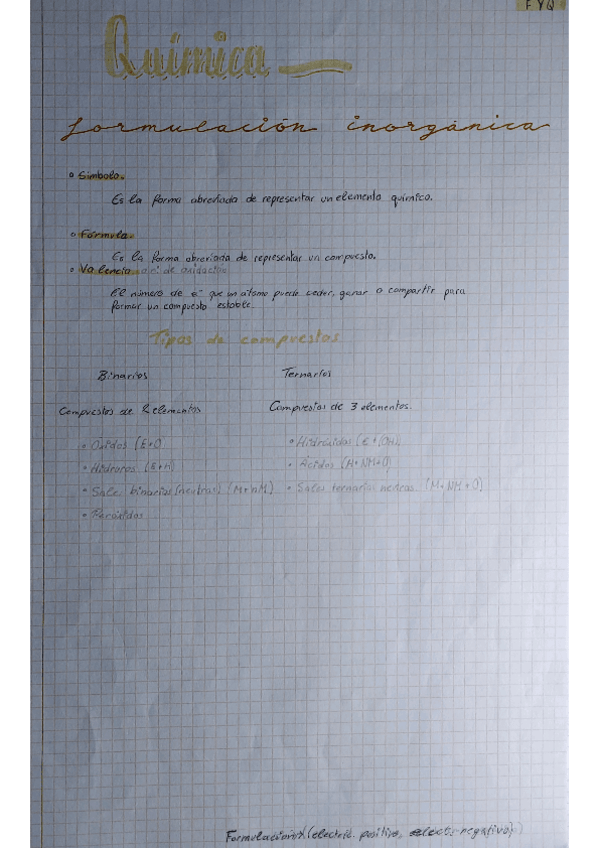 FYQ
Química
formulación inorgánica
Símbolo.
Es la forma abreviada de representar un elemento químico.
Fórmula.
Es la forma abreviada de representar un compuesto.
Valencia o nº de oxidación
El número de e⁻ que un átomo puede ceder, ganar o compartir para
formar un compuesto estable.
Tipos de compuestos
Binarios Ternarios
Compuestos de 2 elementos Compuestos de 3 elementos.
• Óxidos (E+O) • Hidróxidos (E+(OH))
• Hidruros (E+H) • Ácidos (H+NM+O)
• Sales binarias (neutras) (M+nM) • Sales ternarias neutras (M+NM+O)
• Peróxidos
(electrd. positivo, elect. negativo)